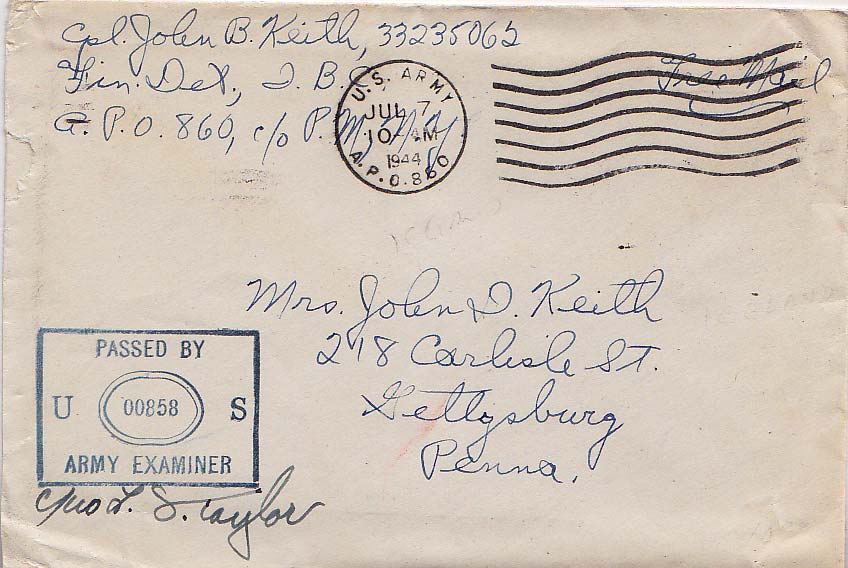 Cpl. John B. Keith, 33235062
Fin. Det., I. B. C.
A. P. O. 860, c/o P. M., N.Y.
Free Mail
U. S. ARMY
JUL 7
10 AM
1944
A. P. O. 860
Mrs. John D. Keith
218 Carlisle St.
Gettysburg
Penna.
PASSED BY
U 00858 S
ARMY EXAMINER
S. Taylor